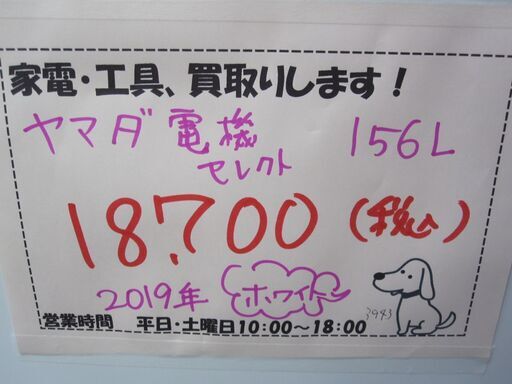 家電・工具、買取りします！
ヤマダ電機 156L
セレクト
18,700 (税込)
2019年 ホワイト
3943
営業時間 平日・土曜日10:00～18:00